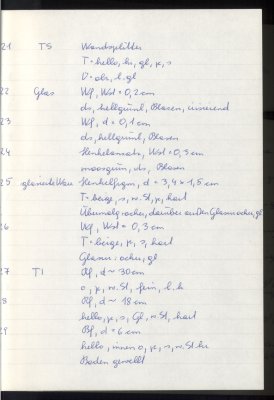 21 TS Wandsplitter
T = hello, br, gl, k, s
O = ok, l. gl
22 Glas Wf, Wst = 0,2 cm
ds, hellgrünl, Blasen, irisierend
23 Wf, d = 0,1 cm
ds, hellgrünl, Blasen
24 Henkelansatz, Wst = 0,5 cm
moosgrün, ds, Blasen
25 glasierte Ware Henkelfrgm, d = 3,4 x 1,5 cm
T = beige, s, w. St, k, hart
26 Wf, Wst = 0,3 cm
T = beige, k, s, hart
Glasur: ocker, gl
27 T1 Rf, d ~ 30 cm
o, k, w. St, fein, l. h
8 Rf, d ~ 18 cm
hello, k, s, Gl, w. St, hart
29 Bf, d = 6 cm
hello, innen o, k, s, w. St, hr
Boden gewellt